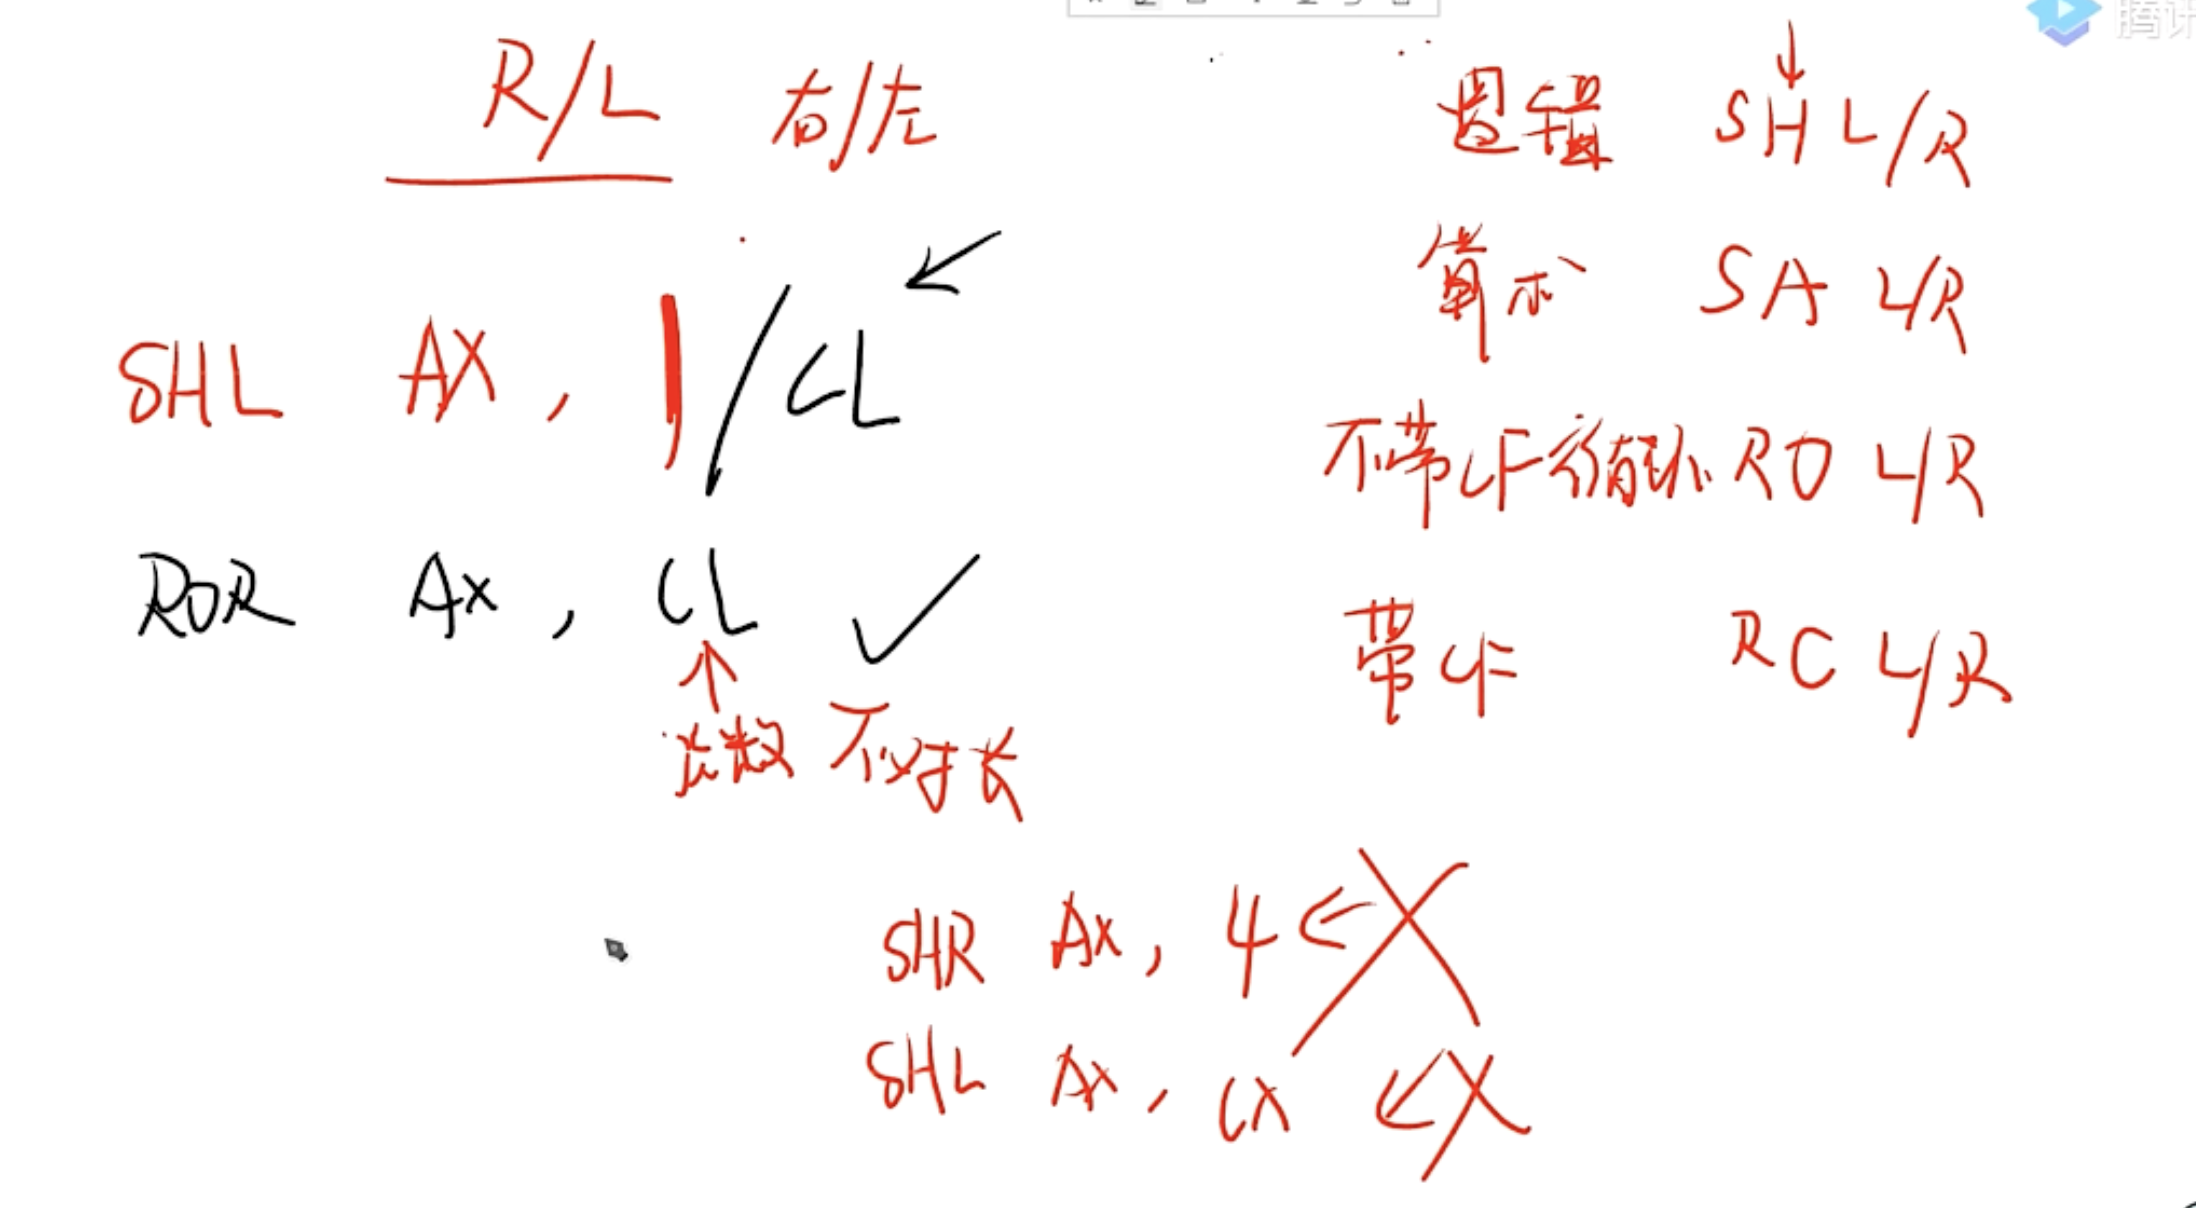 R/L 右/左
SHL AX, 1/CL
ROR AX, CL ✓
次数 不对于长
逻辑 SHL/R
算术 SA L/R
不带CF循环 RO L/R
带CF RC L/R
SHR AX, 4 ← X
SHL AX, CX ← X
腾讯